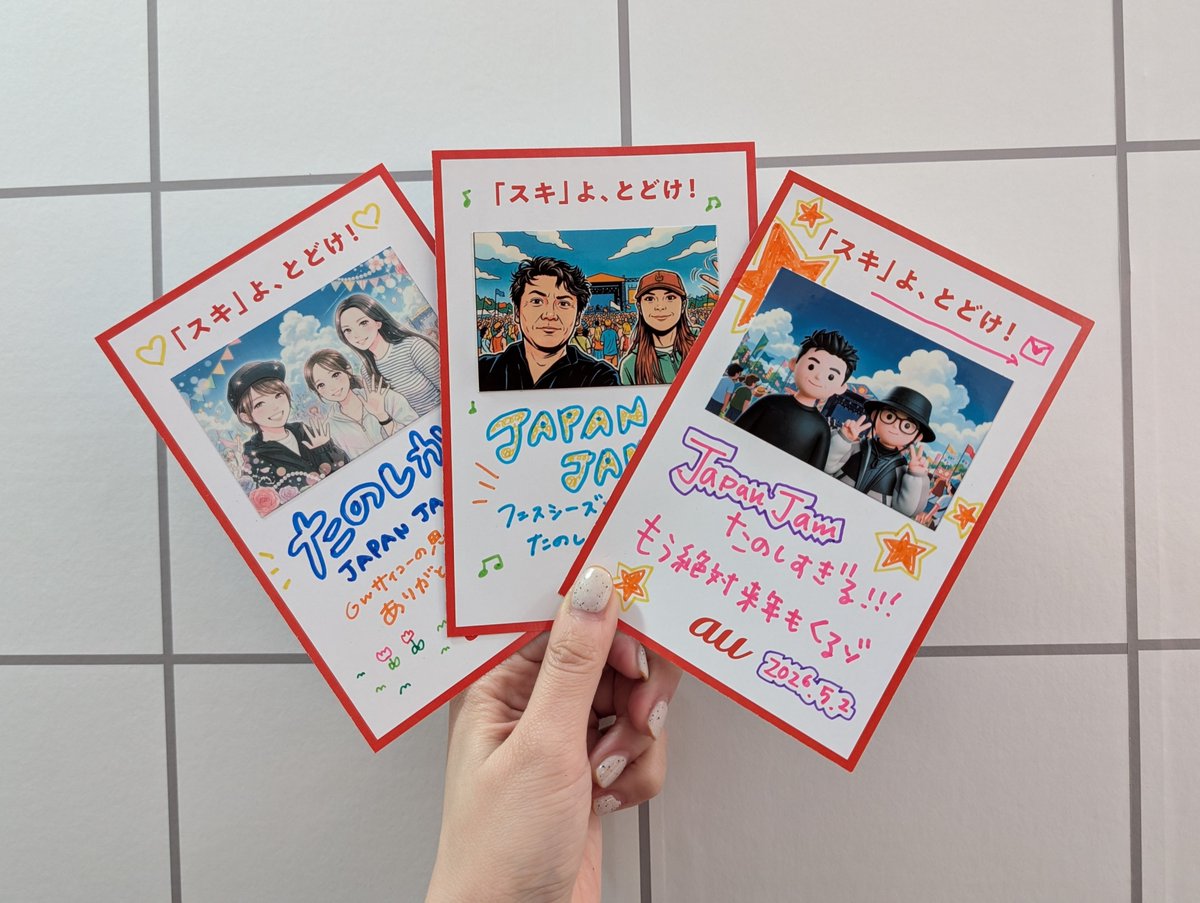 「スキ」よ、とどけ!
たのしか
JAPAN JA
GWサイコーの思
ありがと
「スキ」よ、とどけ!
JAPAN
JAM
フェスシーズン
たのし
「スキ」よ、とどけ!
Japan Jam
たのしすぎる!!!
もう絶対来年もくるゾ
au
2026.5.2